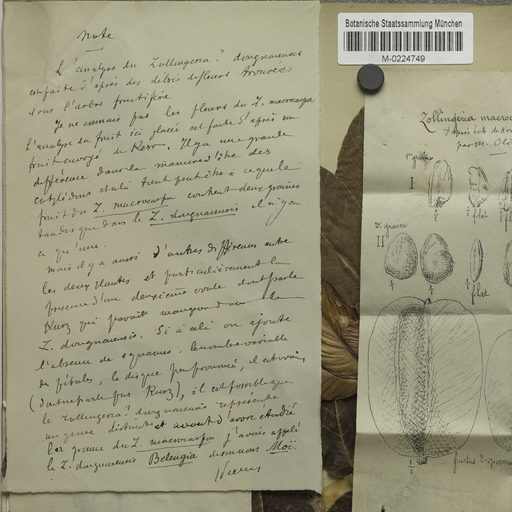 Note
L'analyse du Zollingeria? dongnaiensis
est faite d'après des débris de fleurs trouvées
sous l'arbre fructifère
Je ne connais pas les fleurs du Z. macrocarpa
L'analyse du fruit ici placée est faite d'après un
fruit envoyé de Kerr. Il y a une grande
différence dans la manière d'être des
cotylédons et cela tient peut-être à ce que le
fruit du Z. macrocarpa contient deux graines
tandis que dans le Z. dongnaiensis il n'y en
a qu'une.
mais il y a aussi d'autres différences entre
les deux plantes et particulièrement la
présence d'un deuxième ovule dont parle
Kurz qui paraît manquer dans le
Z. dongnaiensis. Si à cela on ajoute
l'absence de squames, le nombre variable
des pétales, le disque peu prononcé, il est vrai,
(dont ne parle pas Kurz), il est possible que
le Zollingeria? dongnaiensis représente
un genre distinct et avant d'avoir étudié
les graines du Z. macrocarpa j'avais appelé
le Z. dongnaiensis Belengia du nom Moï.
Pierre
Botanische Staatssammlung München
M-0224749
Zollingeria macroc
d'après éch. de Ker
par M. Oli
1e graine
I
1/1
1/1
2e graine
II
1/1
1/1
1/1
1/1
fructus 2-sperme